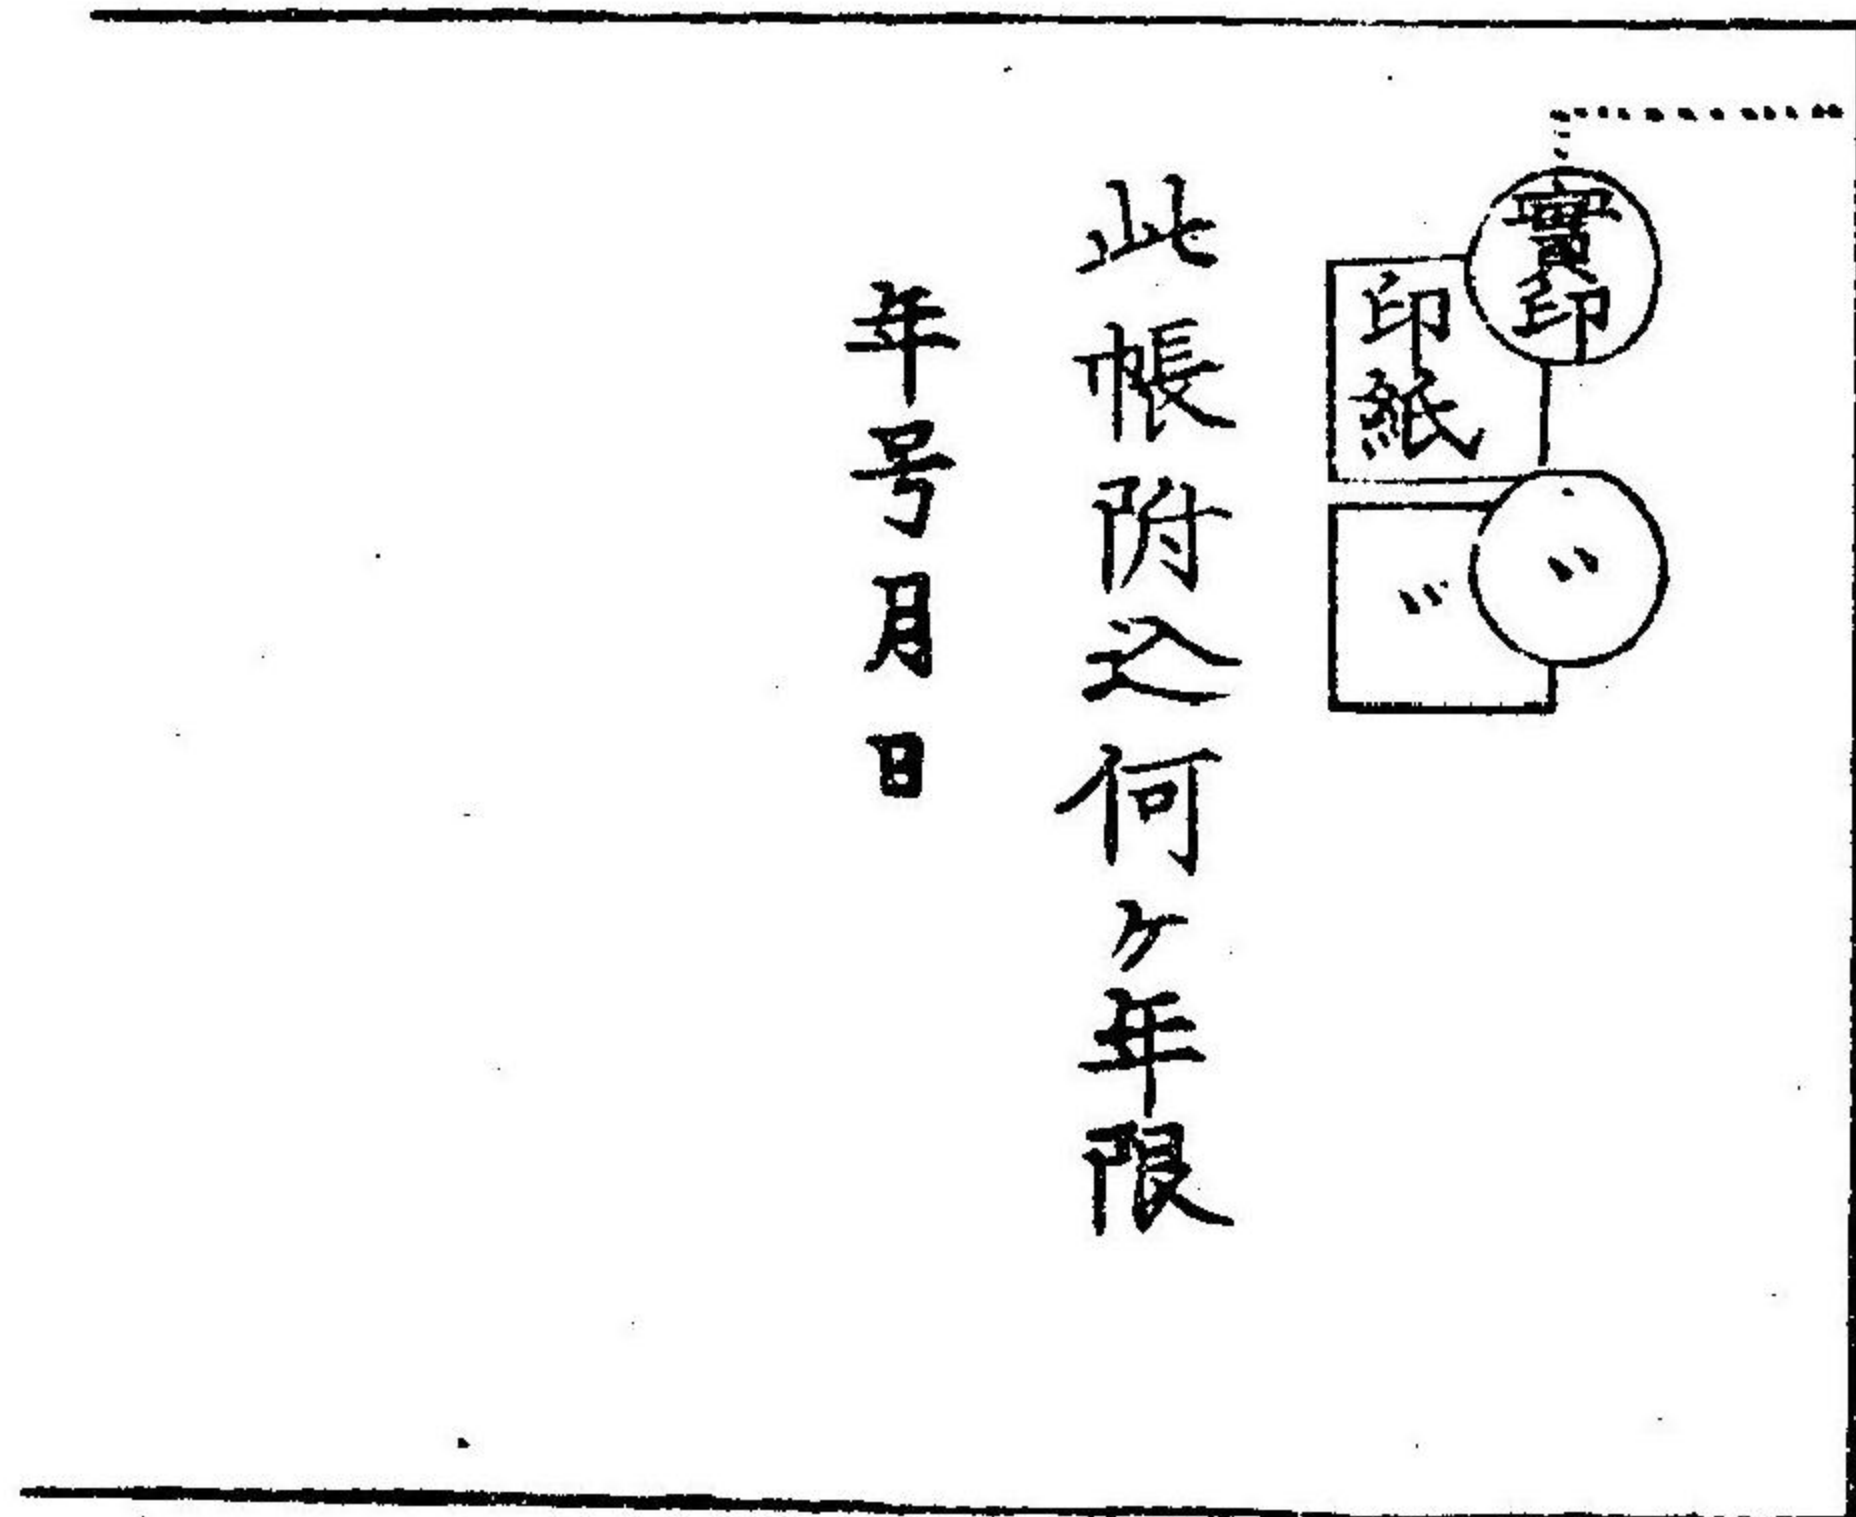 實印
印紙
〃
〃
此帳附込何ヶ年限
年号月日